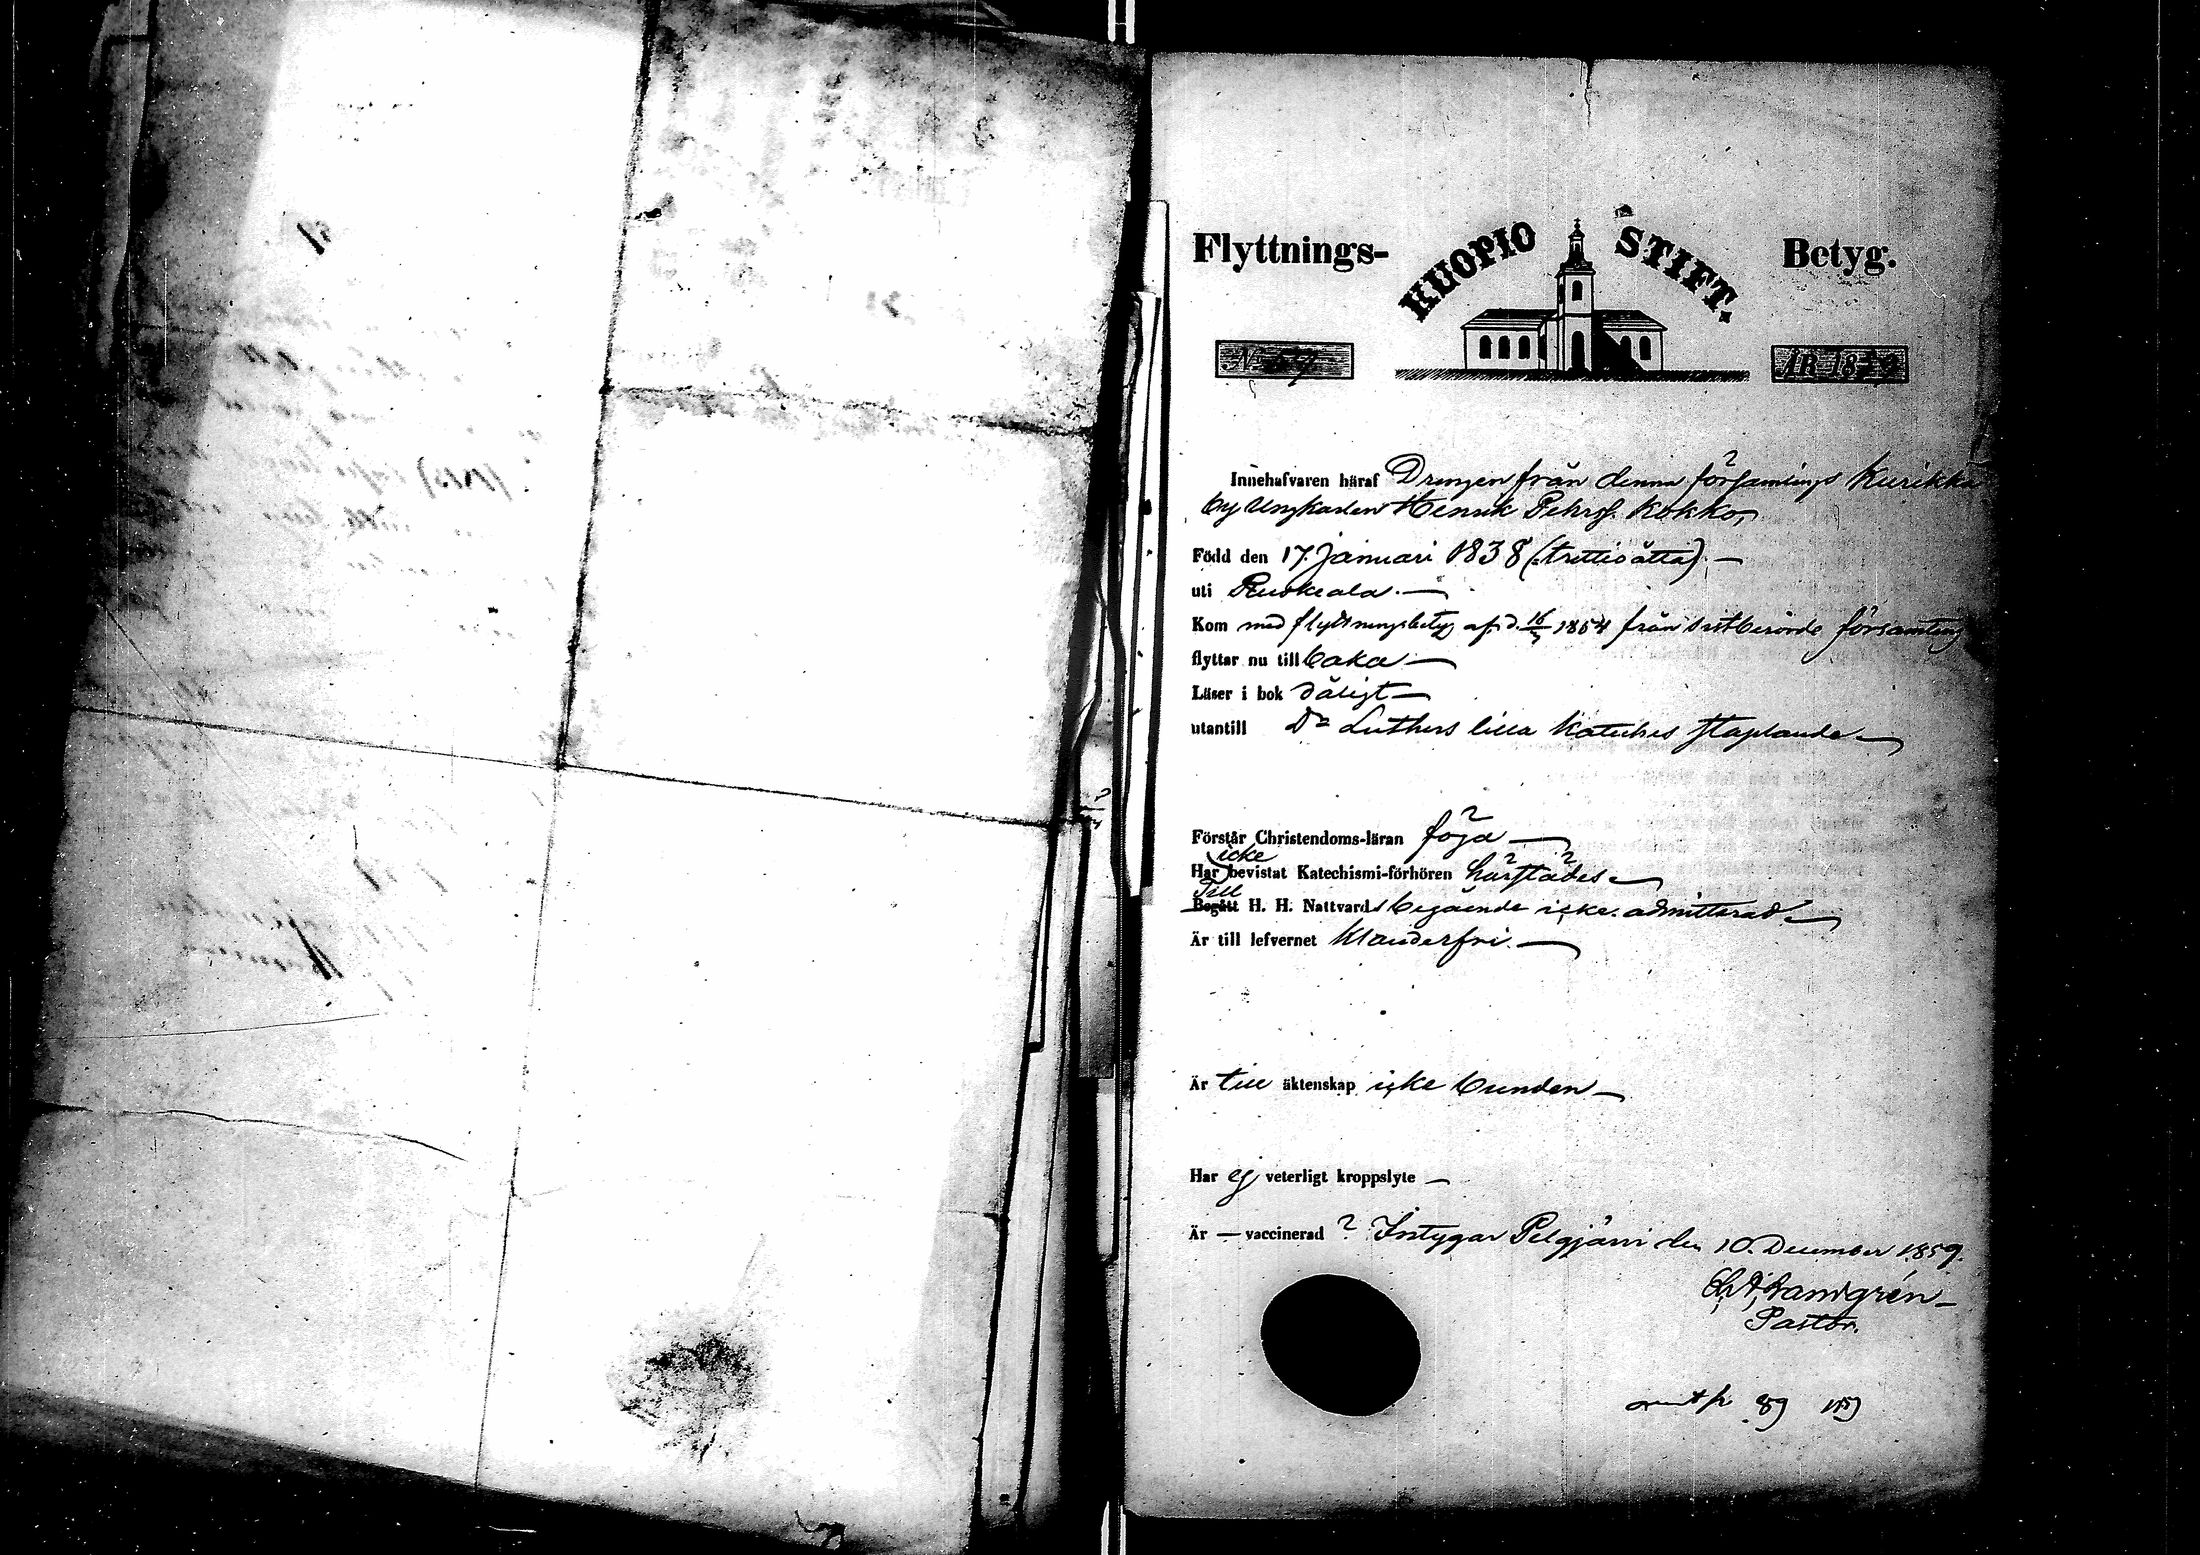 Flyttnings- KUOPIO STIFT. Betyg.
ÅR 18
Innehafvaren häraf Drengen från denna församlings Kurikka
by Ungkarlen Henrik Pehrs. Kokko,
Född den 17. Januari 1838 (:trettio åtta). —
uti Ruskeala. —
Kom med flyttningsbetyg af d. 1854 från sistberörde församling
flyttar nu till baka —
Läser i bok dåligt —
utantill Dr Luthers lilla Kateches staplande —
Förstår Christendoms-läran föga —
icke
Har bevistat Katechismi-förhören härstädes —
Till
Begått H. H. Nattvards begående icke admitterad —
Är till lefvernet klanderfri. —
Är till äktenskap icke bunden —
Har ej veterligt kroppslyte —
Är — vaccinerad ? Intygar Pelgjärvi den 10. December 1859.
Pastor.